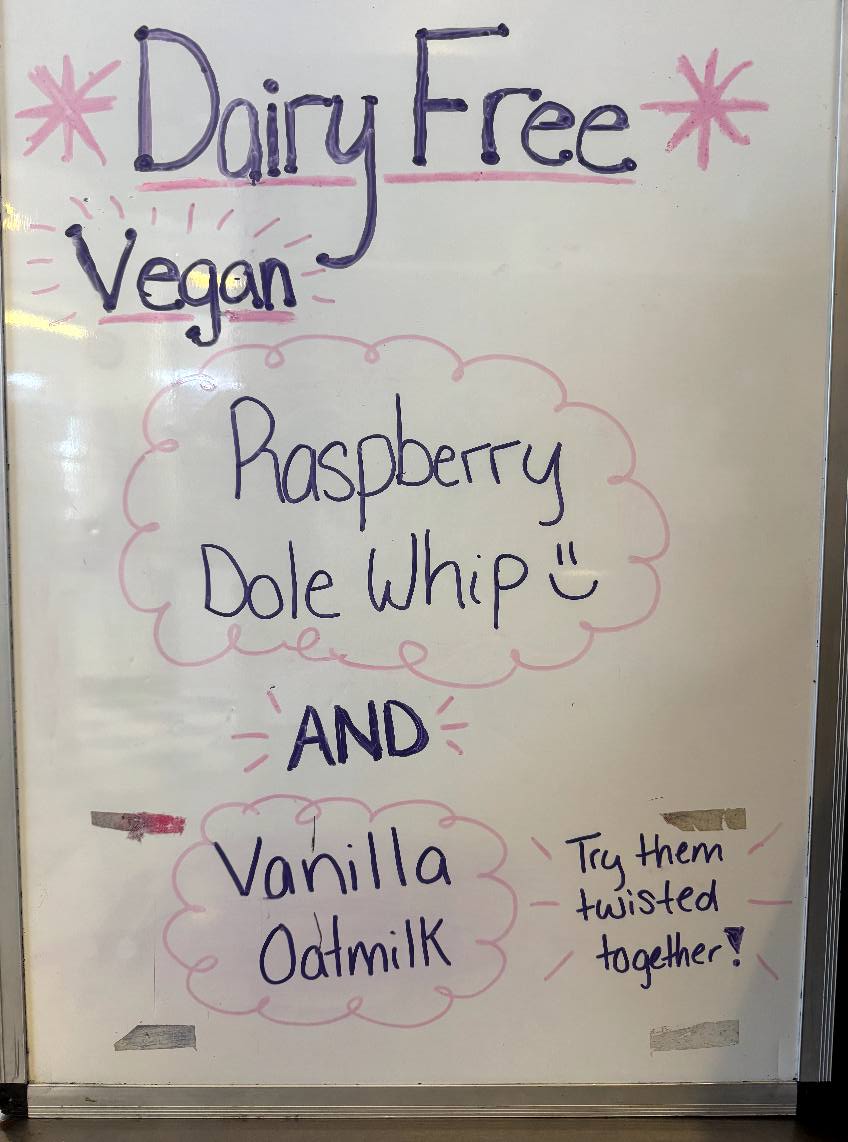 Dairy Free
Vegan
Raspberry
Dole Whip
AND
Vanilla
Oatmilk
Try them
twisted
together!